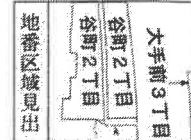 大手前3丁目
谷町2丁目
谷町2丁目
地番区域見出